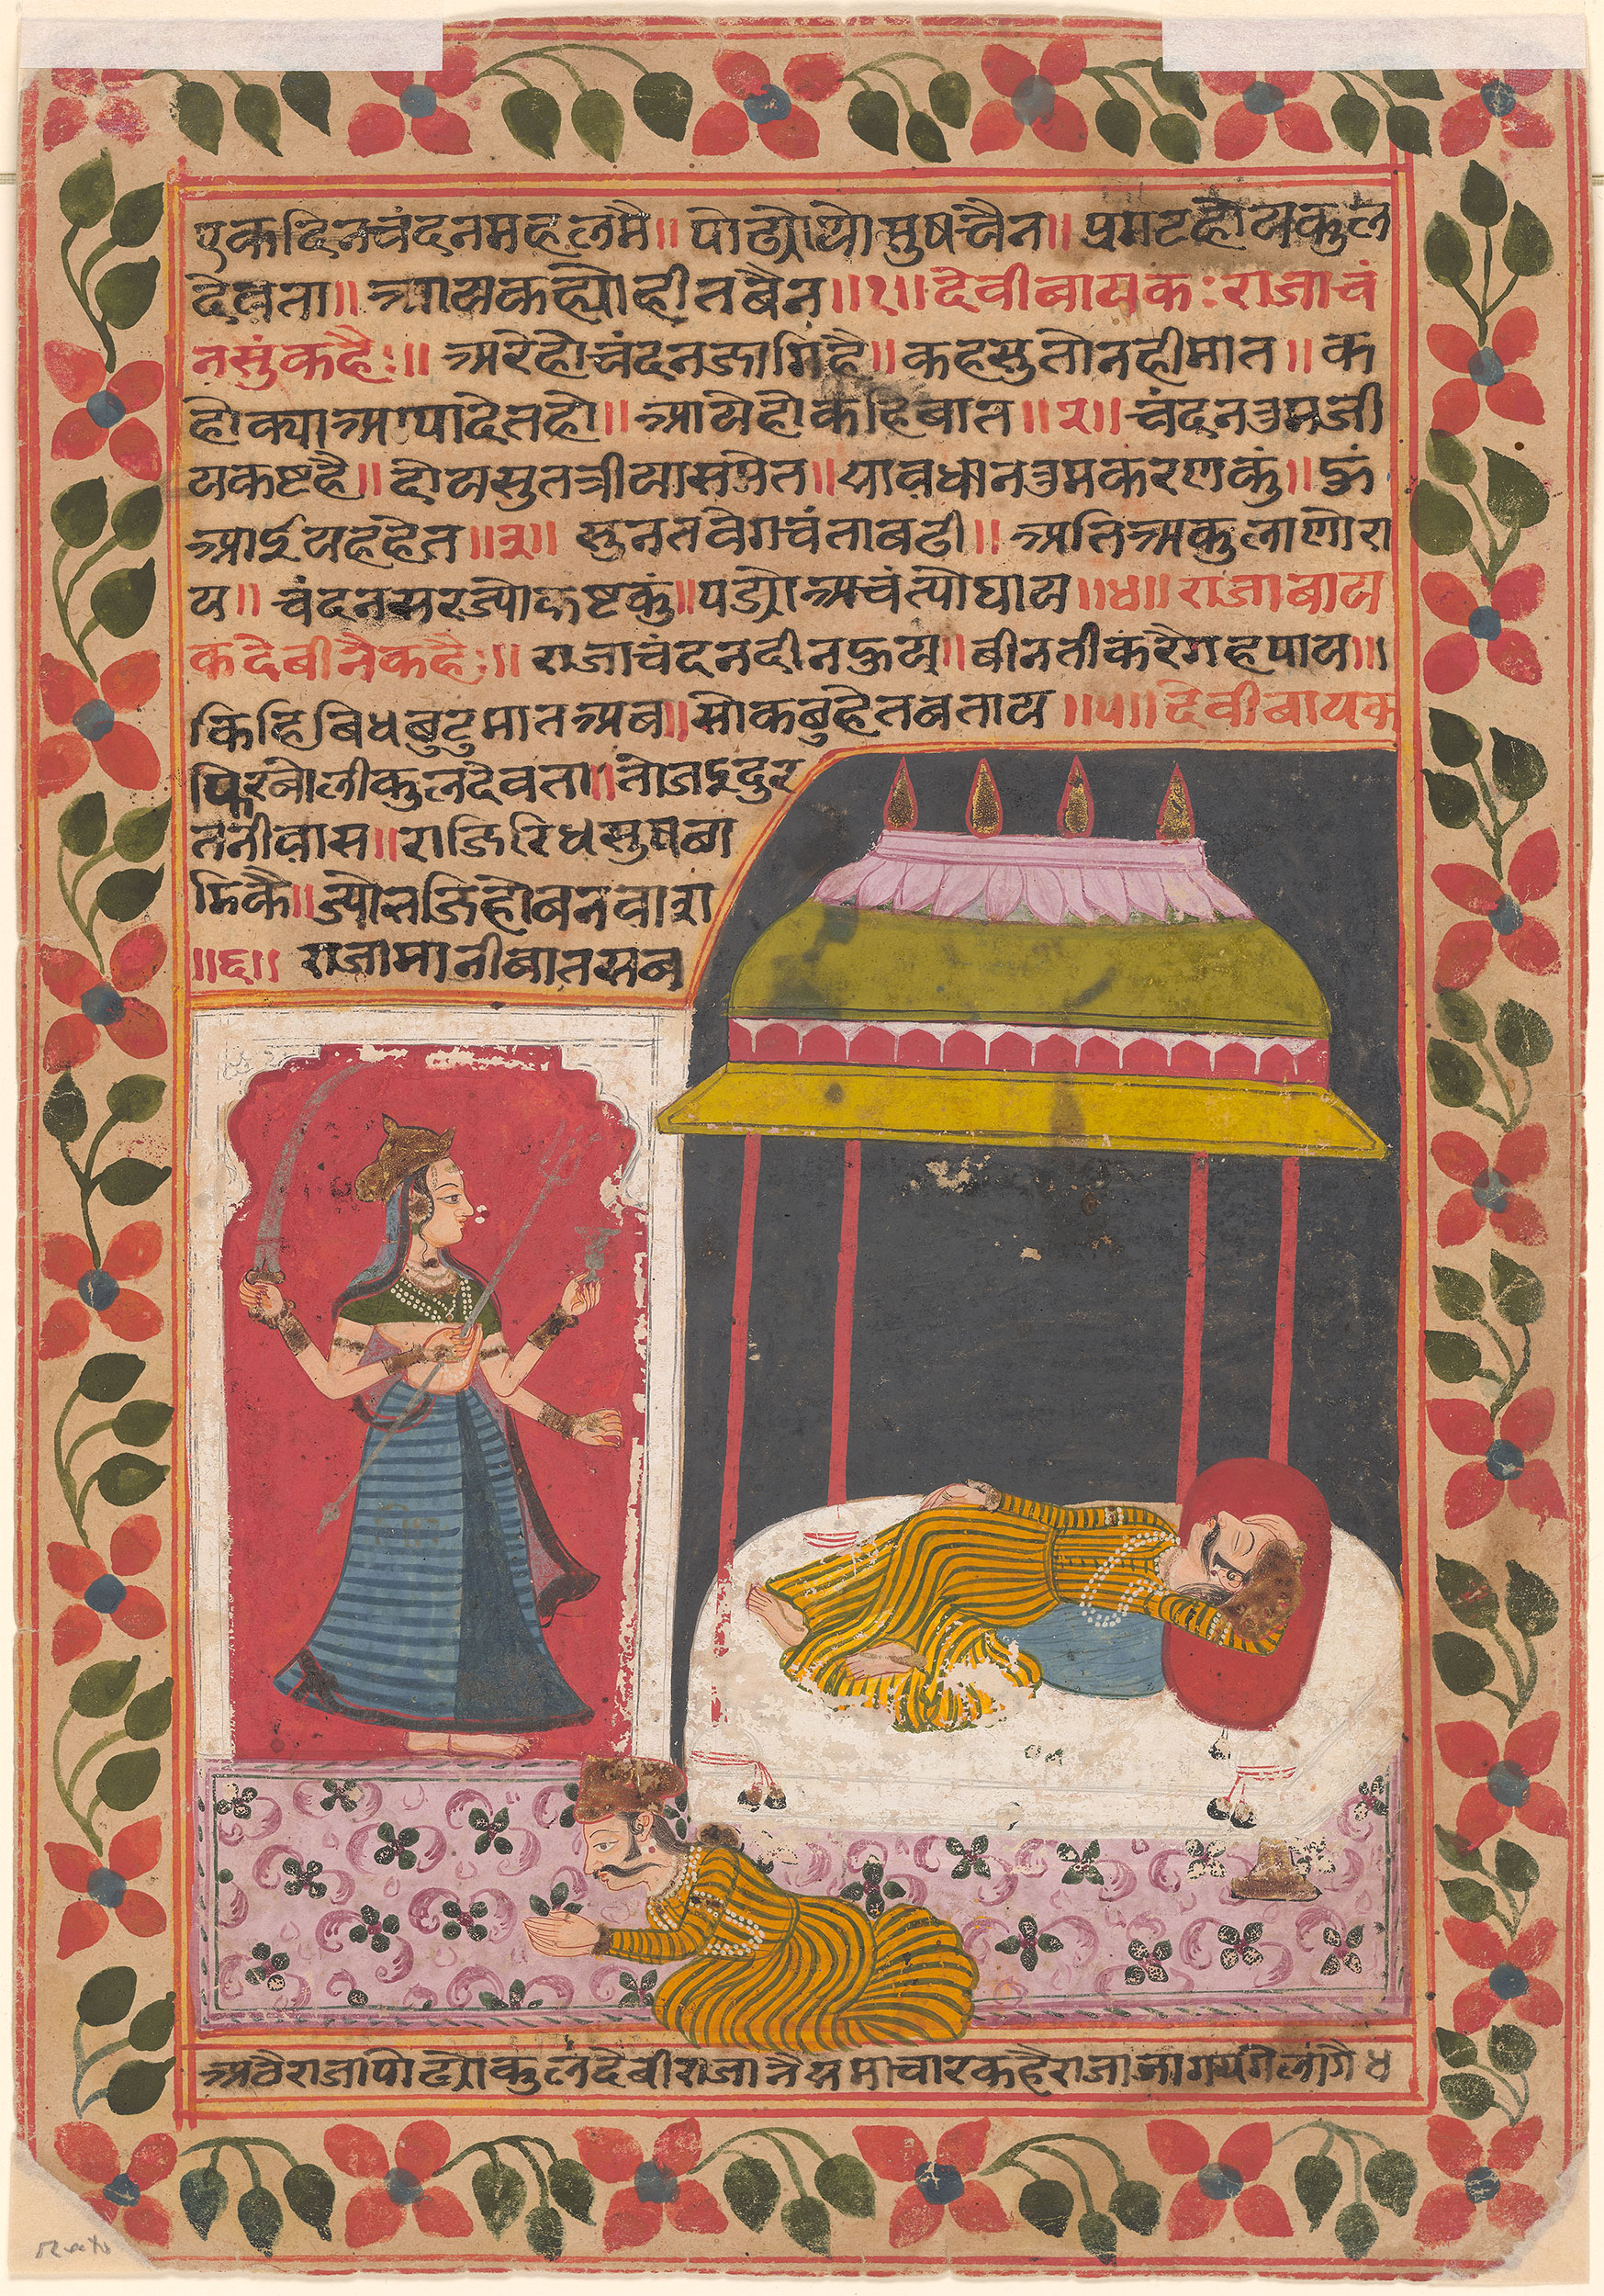 एकदिनचंदनमहलमै॥ पोढ्योथोसुषचैन॥ प्रगटहोयकुल
देवता॥ आयकह्योहीतबैन॥१॥ देवीबायक: राजाचं
नसुंकहै:॥ अरेहोचंदनजागिहै॥ कहसुतोनहीमात॥ क
होक्याआग्यादेतहो॥ आयेहोकहिबात॥२॥ चंदनतुमजी
यकष्टहै॥ दोयसुतत्रीयासमेत॥ सावधानतुमकरणकुं॥ हुं
आईयहहेत॥३॥ सुनतवेगचंताबढी॥ अतिअकुलाणोरा
य॥ चंदन कष्टकुं॥ पड्योअचंत्योघाय॥४॥ राजाबाय
कदेबीनैकहै:॥ राजाचंदनदीनहुय॥ बीनतीकरैगहपाय॥
किहिबिधबुटुमातअब॥ सोकबुहेतबताय॥५॥ देवीबायक
फिरबोलीकुलदेवता॥ तोजइदुर
तनीवास॥ राजरिधसुष
॥ ज्योतजिहोबनवा
॥६॥ राजामानीबातसब
अवैराजापोढ्योकुलदेबीराजानैसमाचारकहैराजाजाग लागैध